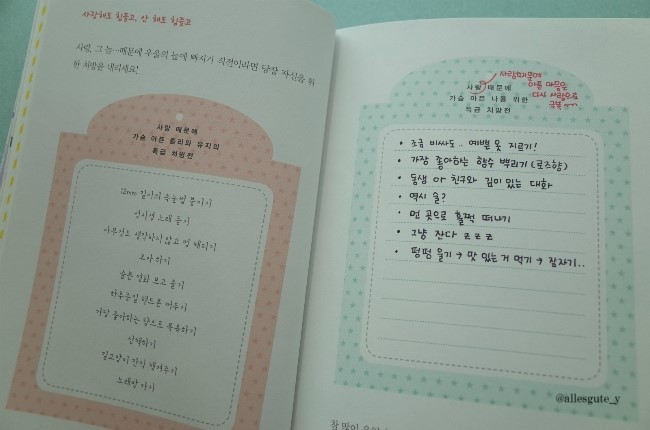 사랑해도 힘들고, 안 해도 힘들고
사랑, 그 놈…때문에 우울의 늪에 빠지기 직전이라면 당장 자신을 위
한 처방을 내리세요!
사랑 때문에
가슴 아픈 올리와 유지의
특급 처방전
12mm 길이의 속눈썹 붙이기
언니네 노래 듣기
아무것도 생각하지 않고 멍 때리기
요가 하기
슬픈 영화 보고 울기
하루종일 핸드폰 꺼두기
가장 좋아하는 향으로 목욕하기
산책하기
길고양이 간식 챙겨주기
노래방 가기
사랑 때문에
가슴 아픈 나를 위한
특급 처방전
사랑때문에
아픈 마음은
다시 사랑으로
극복
• 조금 비싸도.. 예쁜 옷 지르기!
• 가장 좋아하는 향수 뿌리기 (로즈향)
• 동생 or 친구와 깊이 있는 대화
• 역시 술?
• 먼 곳으로 훌쩍 떠나기
• 그냥 잔다 z z z
• 펑펑 울기 → 맛 있는 거 먹기 → 잠자기..
@allesgute_y
참 많이